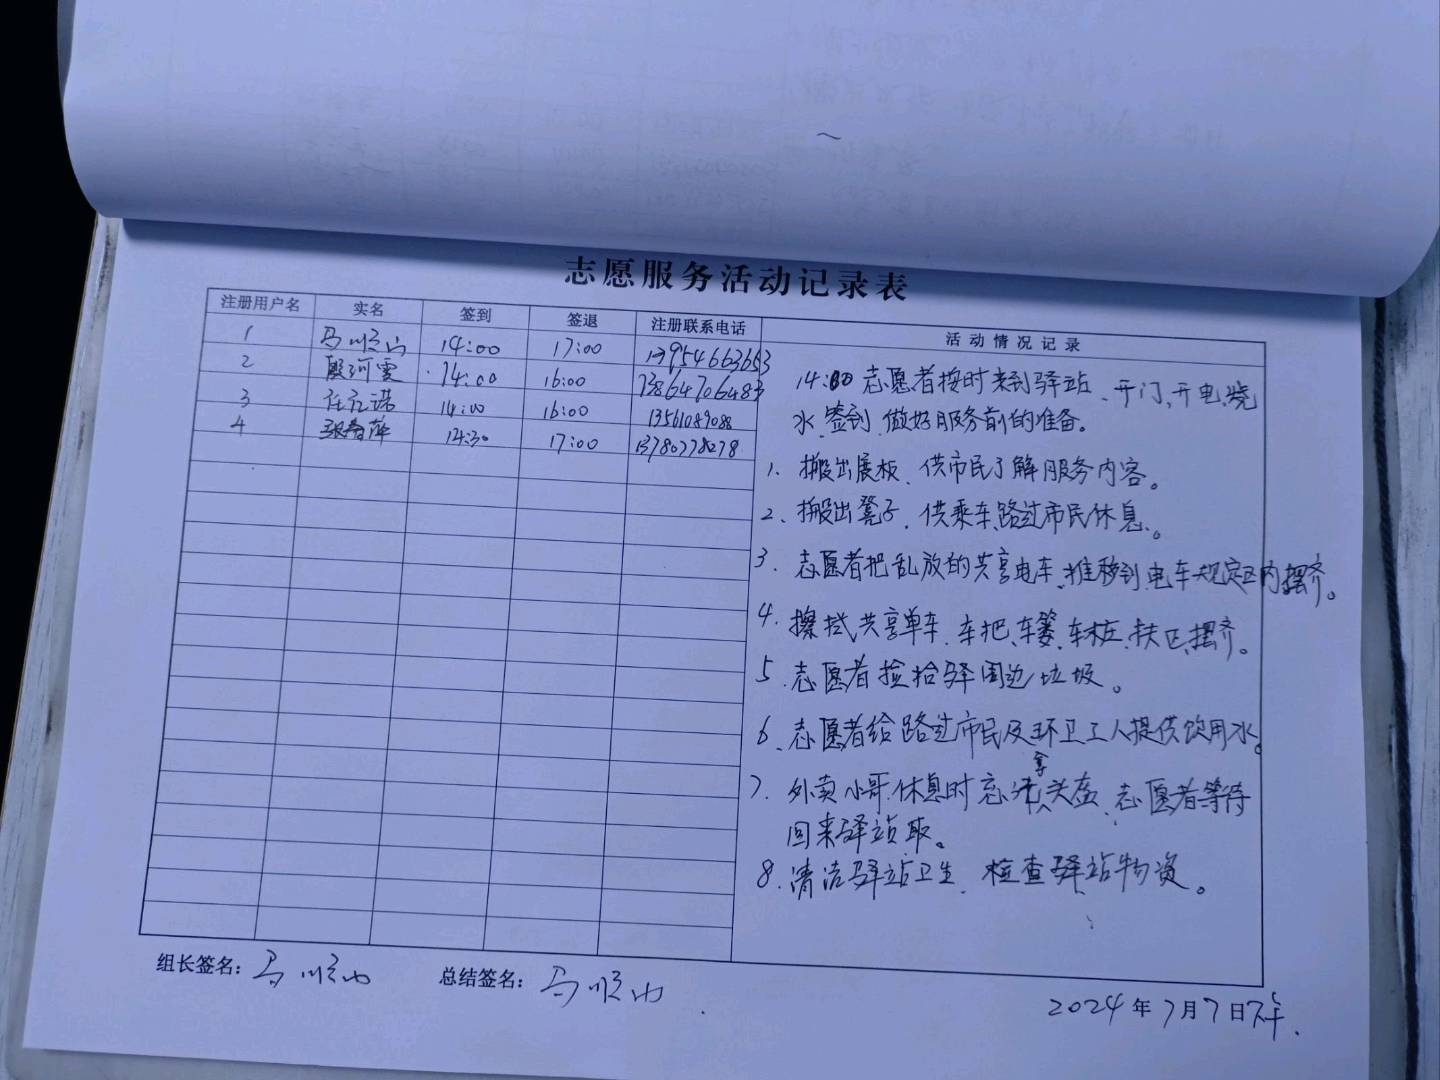 志愿服务活动记录表
注册用户名 实名 签到 签退 注册联系电话 活动情况记录
1 马顺山 14:00 17:00 13954663653
2 殷河雯 14:00 16:00 13864706483
3 14:00 16:00 13561089088
4 张春萍 14:30 17:00 13780778278
14:00 志愿者按时来到驿站、开门,开电,烧
水、签到、做好服务前的准备。
1、搬出展板、供市民了解服务内容。
2、搬出凳子、供乘车、路过市民休息。
3、志愿者把乱放的共享电车、推移到电车规定区内摆齐。
4、擦拭共享单车、车把、车篓、车桩、扶正、摆齐。
5、志愿者捡拾驿周边垃圾。
6、志愿者给路过市民及环卫工人提供饮用水。
7、外卖小哥休息时忘拿头盔、志愿者等待
回来驿站取。
8、清洁驿站卫生、检查驿站物资。
组长签名:马顺山 总结签名:马顺山
2024年7月7日下午.